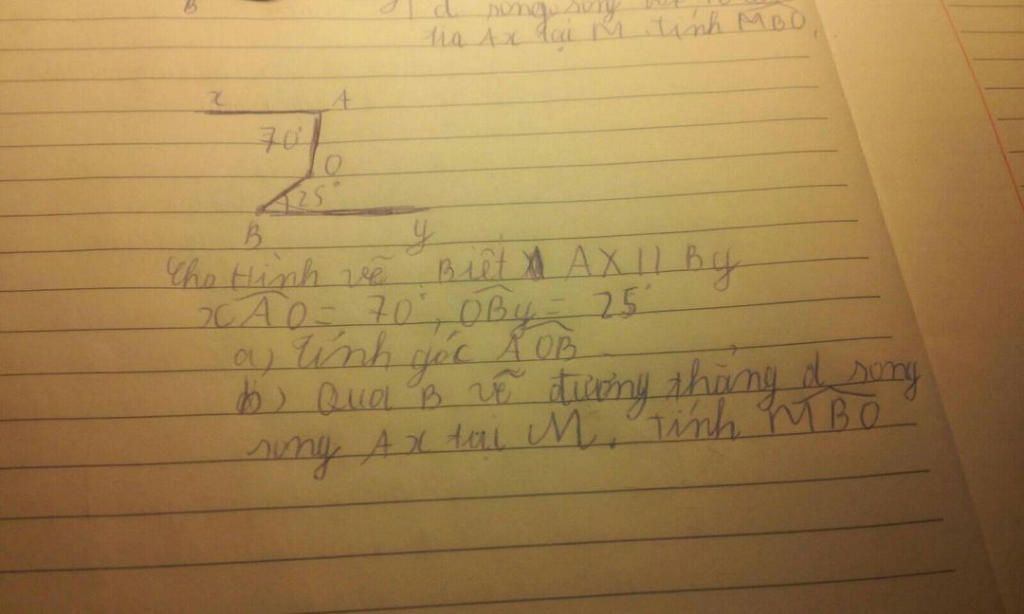 B d song song
tia Ax tại M. tính MBO.
x A
70°
O
25°
B y
Cho Hình vẽ Biết AX // By
xAO = 70°, OBy = 25°
a) tính góc AOB
b) Qua B vẽ đương thẳng d song
song Ax tại M. tính MBO